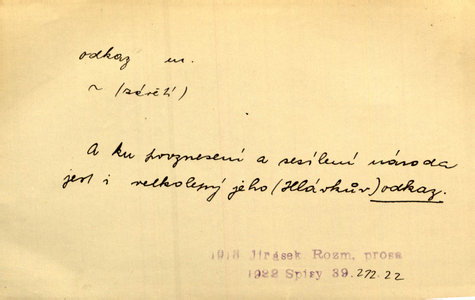 odkaz m.
~ (závětí)
A ku povznesení a sesílení národa
jest i velkolepý jeho (Hlávkův) odkaz.
1913 Jirásek. Rozm, prosa
1922 Spisy 39. 272. 22